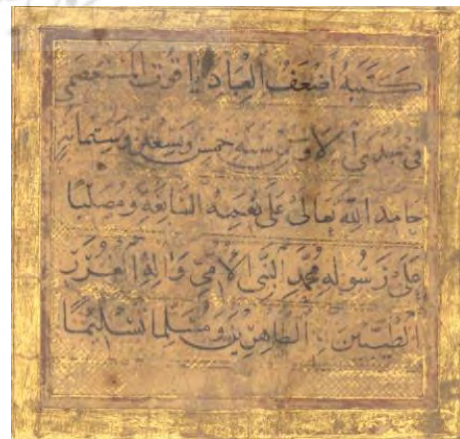 كتبه اضعف العباد ياقوت المستعصمي
في جمدى الاولى سنة خمس وتسعين وستمائة
حامدا لله تعالى على نعمه السابغة ومصليا
على رسوله محمد النبي الامي واله الغرر
الطيبين الطاهرين مسلما تسليما